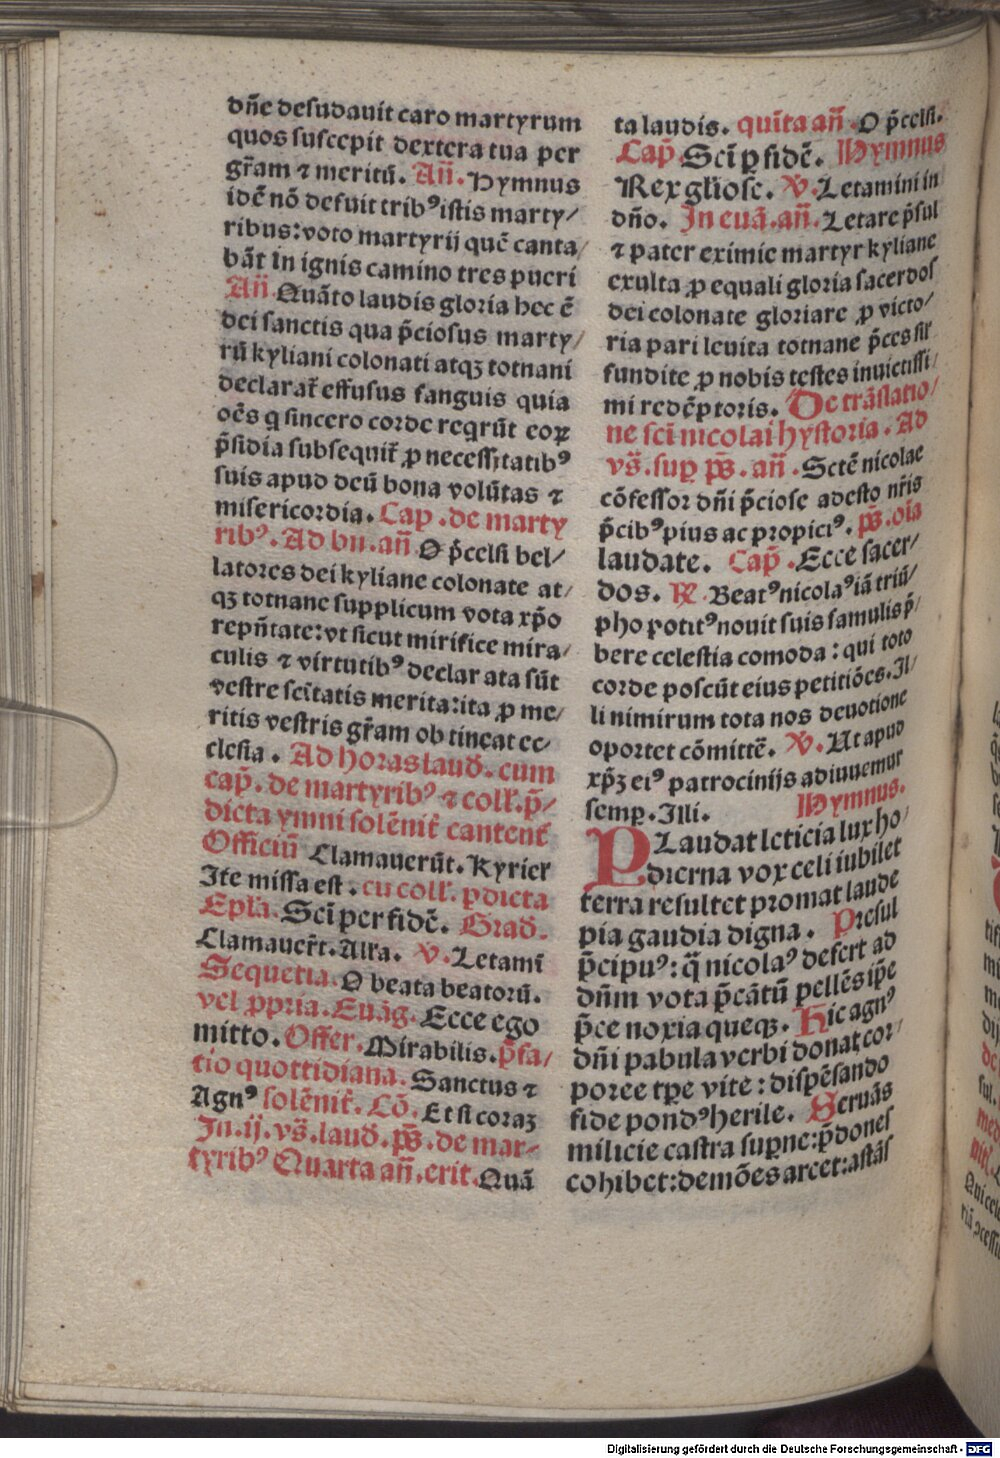 dñe desudauit caro martyrum
quos suscepit dextera tua per
gr̃am ⁊ meritũ. Añ. Hymnus
idẽ nõ defuit tribꝰ istis marty/
ribus: voto martyrij quẽ canta/
bãt in ignis camino tres pueri
Añ. Quãto laudis gloria hec ẽ
dei sanctis qua p̃ciosus marty/
rũ kyliani colonati atqꝫ totnani
declarat̃ effusus sanguis quia
oẽs q sincero corde reqrũt eoꝝ
p̃sidia subsequit̃ ꝓ necessitatibꝰ
suis apud deũ bona volũtas ⁊
misericordia. Cap. de marty
ribꝰ. Ad bñ. añ O p̃celsi bel/
latores dei kyliane colonate at/
qꝫ totnane supplicum vota xp̃o
repñtate: vt sicut mirifice mira/
culis ⁊ virtutibꝰ declar ata sũt
vestre scĩtatis merita: ita ꝓ me/
ritis vestris gr̃am ob tineat ec/
clesia. Ad horas laud̃. cum
cap̃. de martyribꝰ ⁊ coll̃. p̃/
dicta ymni solẽnit̃ cantent̃
Officiũ Clamauerũt. Kyriel̃
Ite missa est. cũ coll̃. p̱dicta
Epl̃a. Scĩ per fidẽ. Grad̃.
Clamauer̃t. Alr̃a. V. Letamĩ
Sequẽtia. O beata beatorũ.
vel ꝓpria. Euãg. Ecce ego
mitto. Offer. Mirabilis. p̃fa/
tio quottidiana. Sanctus ⁊
Agnꝰ solẽnit̃. Cõ. Et si coraꝫ
In. ij. vs̃. laud̃. ps̃. de mar-
tyribꝰ Quarta añ. erit. Quã
ta laudis. quĩta añ. O p̃celsi.
Cap̃. Scĩ p̱ fidẽ. Hymnus
Rex gl̃iose. V. Letamini in
dño. In euã. añ. Letare p̃sul
⁊ pater eximie martyr kyliane
exulta ꝓ equali gloria sacerdos
dei colonate gloriare ꝓ victo/
ria pari leuita totnane p̃ces sil̃
fundite ꝓ nobis testes inuictissi/
mi redẽptoris. De trãslatio/
ne scĩ nicolai hystoria. Ad
vs̃. sup̱ ps̃. añ. Sctẽ nicolae
cõfessor dñi p̃ciose adesto nr̃is
p̃cibꝰ pius ac propiciꝰ. ps̃. oĩa
laudate. Cap̃. Ecce sacer/
dos. ℟. Beatꝰ nicolaꝰ iã triũ/
pho potitꝰ nouit suis famulis p̃/
bere celestia comoda: qui toto
corde poscũt eius petitiões. Il/
li nimirum tota nos deuotione
oportet cõmittẽ. V. Ut apud
xp̃ꝫ eiꝰ patrocinijs adiuuemur
semp̱. Illi. Hymnus.
PLaudat leticia lux ho/
dierna vox celi iubilet
terra resultet promat laude
pia gaudia digna. Presul
p̃cipuꝰ: q̃ nicolaꝰ defert ad
dñm vota p̃cãtũ pellẽs ip̃e
p̃ce noxia queqꝫ. Hic agnꝰ
dñi pabula verbi donat cor/
poree tp̃e vite: dispẽsando
fide pondꝰ herile. Seruãs
milicie castra sup̱ne: p̃dones
cohibet: demões arcet: astãs
Digitalisierung gefördert durch die Deutsche Forschungsgemeinschaft - DFG